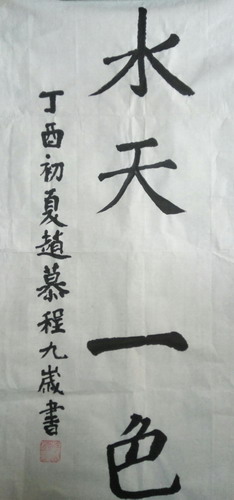 水天一色
丁酉初夏趙慕程九歲書